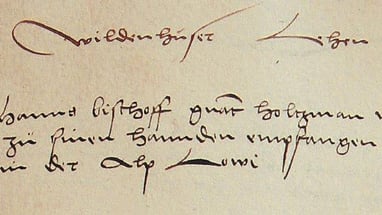 Wildenhuser Lehen
Hanns bischoff gnat holtzman
zů sinen hannden empfangen
in der Alp Lowi